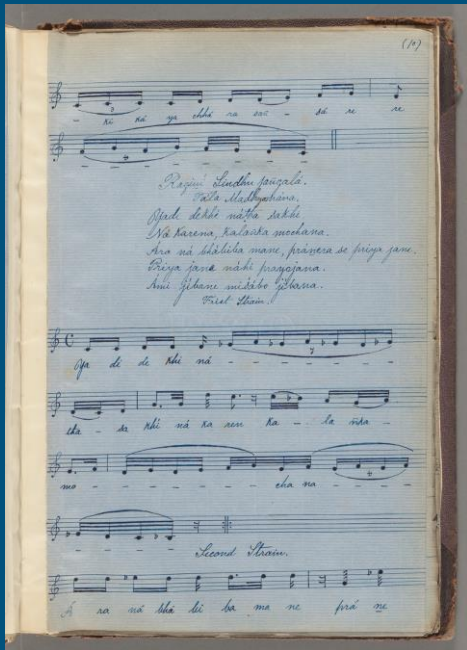 (10)
- ki ká ya chhá ra sau - dá re re
3
Ragini Sindhu jangalá.
Tála Madhyamána.
Yadi dekhi nátha sakhi
Ná karena, kalanka mochana.
Ára ná bhábiba mane, pránera se priya jane.
Priya jana náhi prayojana.
Ámi jibane misábo jibana.
First Strain.
C
Ya di de khi ná - - - - - - - - -
tha - sa khi ná ka ren ka - la nka -
mo - - - - - - - cha na - - - - -
- - - - -
Second Strain.
Á ra ná bhá bi ba ma ne prá ne